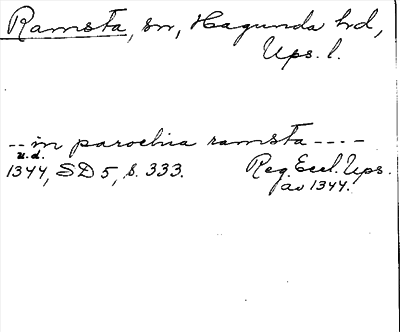 Ramsta, sn, Hagunda hd,
Ups. l.
-- in parochia ramsta ----
u.d.
1344, SD 5, s. 333. Reg. Eccl. Ups.
av 1344.